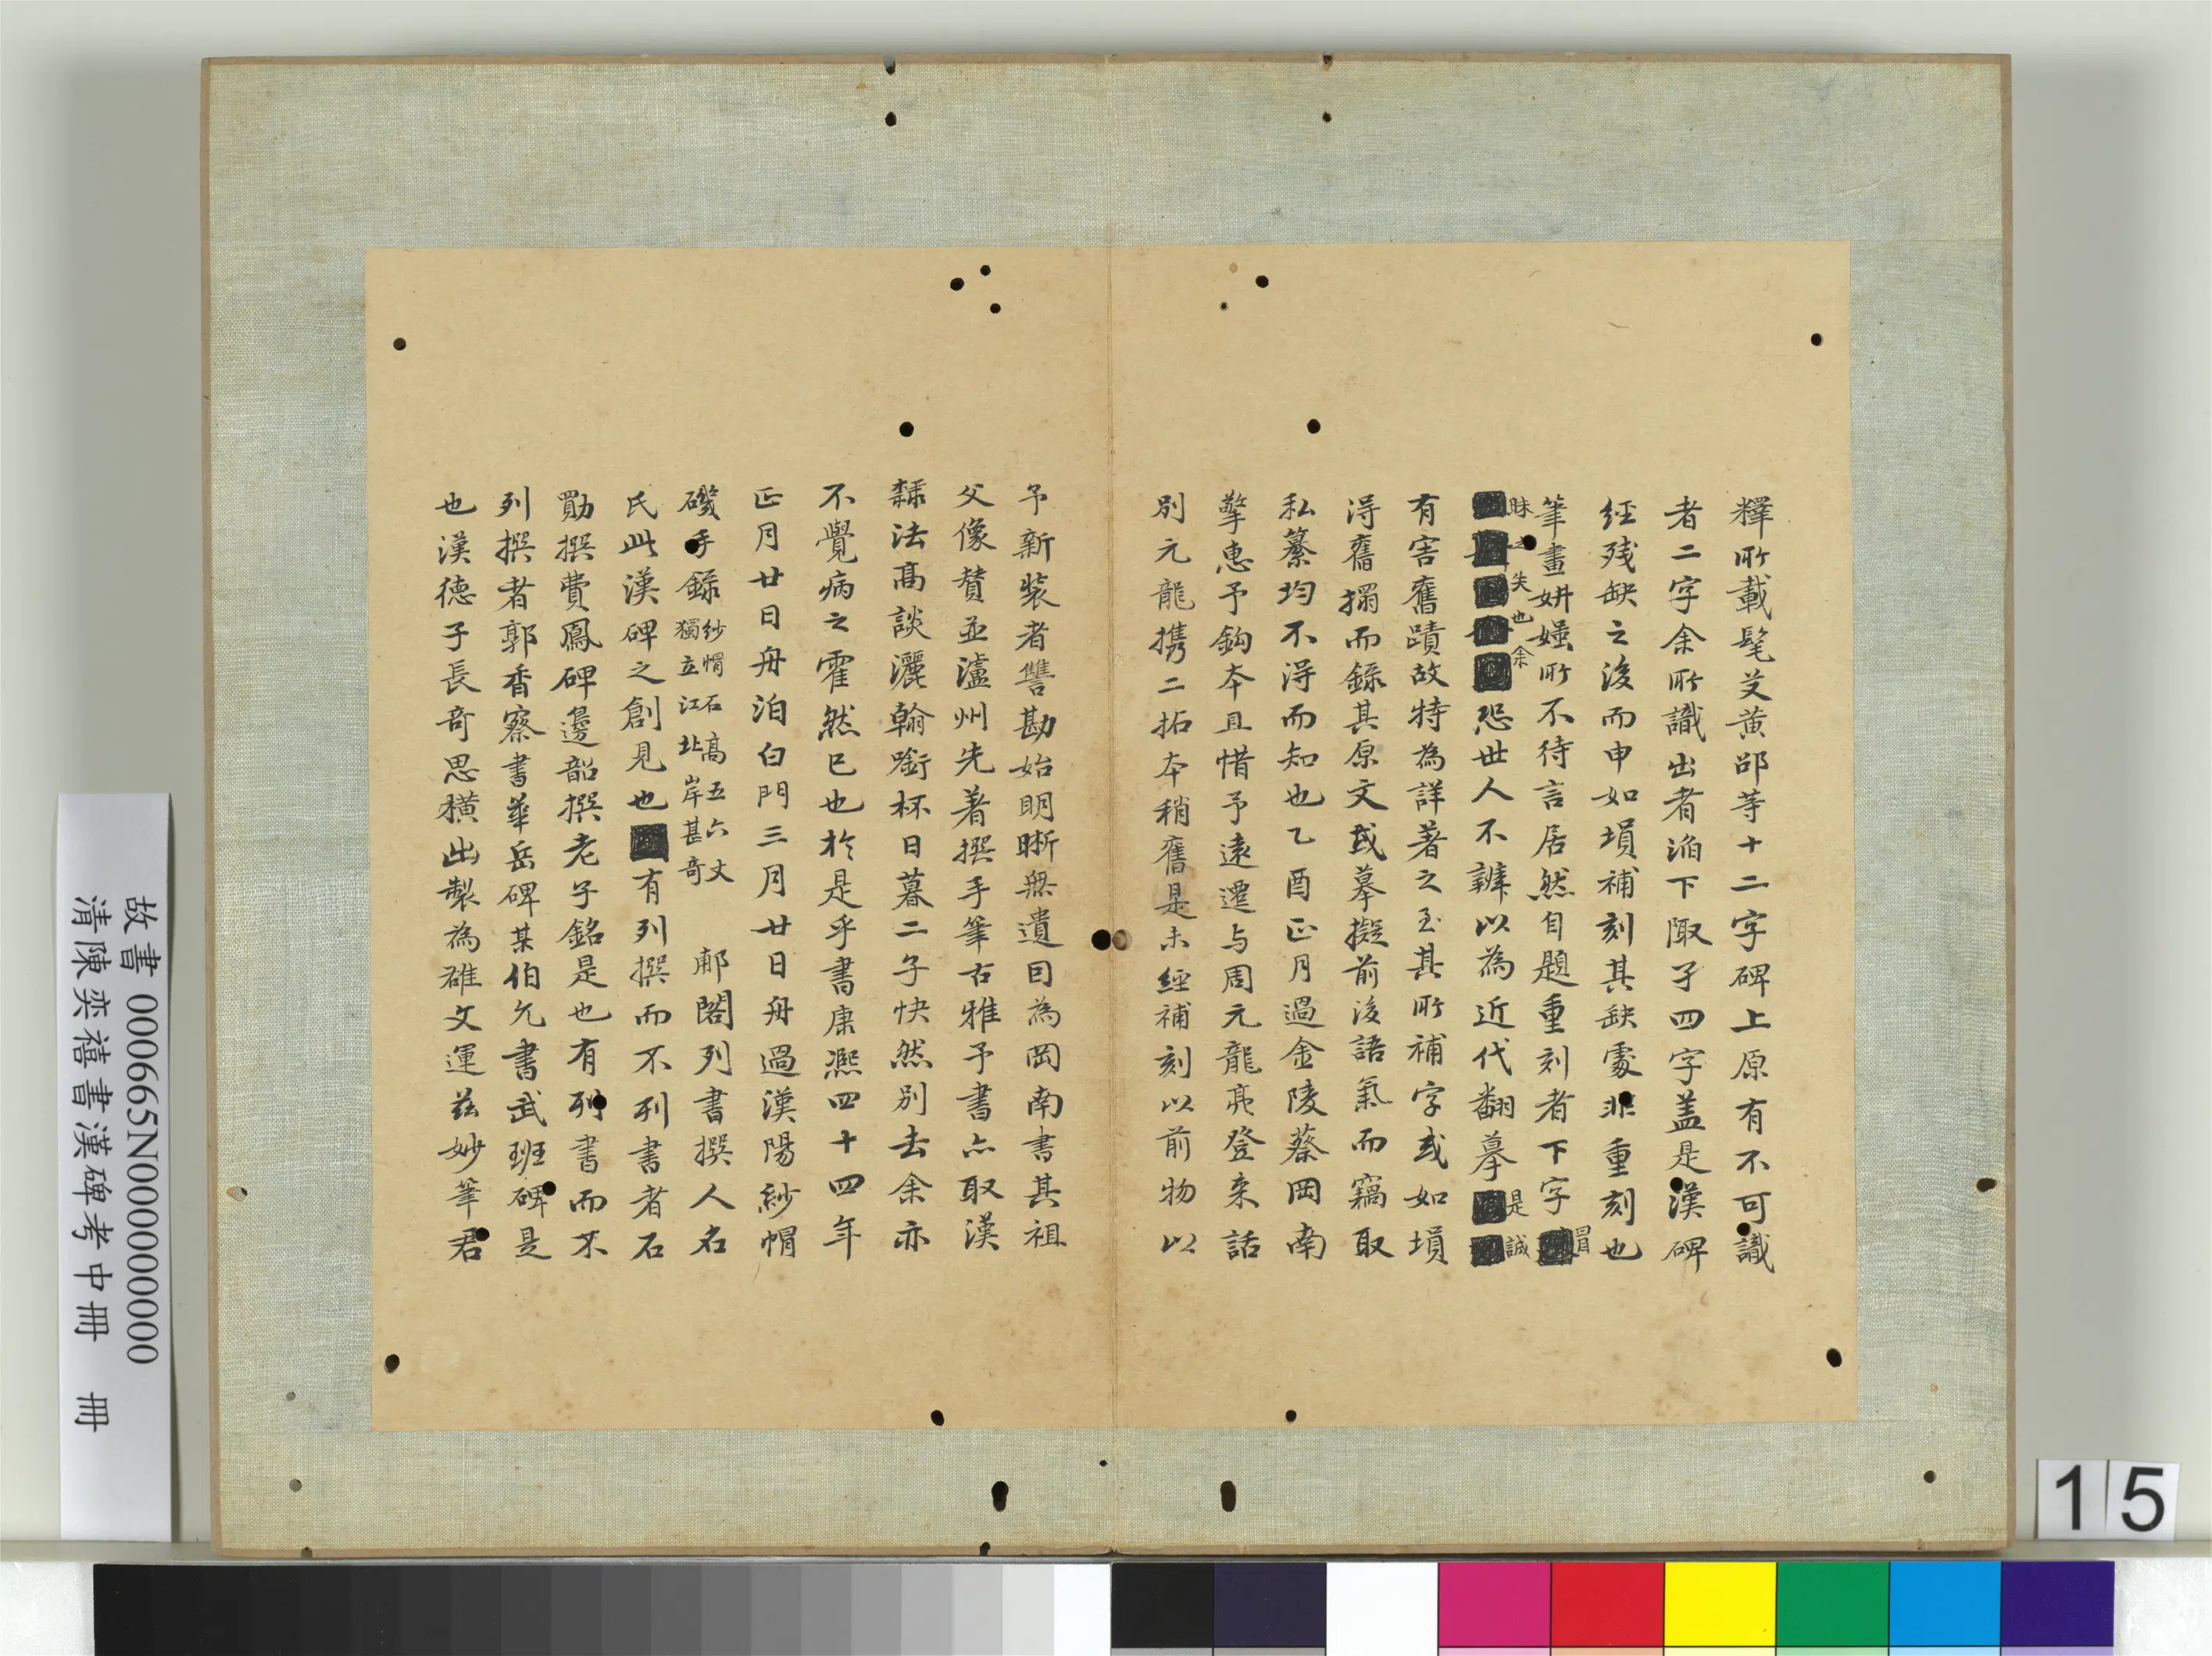 釋所載髦芟黃邵等十二字碑上原有不可識
者二字余所識出者淊下陬子四字盖是漢碑
經殘缺之後而申如塤補刻其缺處非重刻也
筆畫妍媸所不待言居然自題重刻者下字冒
昧之失也余恐世人不辨以為近代翻摹是誠
有害舊蹟故特為詳著之至其所補字或如塤
淂舊搨而錄其原文或摹擬前後語氣而竊取
私纂均不淂而知也乙酉正月過金陵蔡岡南
擎惠予鈎本且惜予遠遷与周元龍亮登来話
別元龍携二拓本稍舊是未經補刻以前物以
予新裝者讐勘始明晰無遺囙為岡南書其祖
父像賛並瀘州先著撰手筆古雅予書亦取漢
隸法高談灑翰啣杯日暮二子快然別去余亦
不覺病之霍然已也於是乎書康熙四十四年
正月廿日舟泊白門三月廿日舟過漢陽紗帽
磯手錄
紗帽石高五六丈
獨立江北岸甚奇
郙閣列書撰人名
氏此漢碑之創見也有列撰而不列書者石
勛撰費鳳碑邊韶撰老子銘是也有列書而不
列撰者郭香察書華岳碑某伯允書武班碑是
也漢德子長奇思橫出製為雄文運茲妙筆君
故書 000665N000000000
清陳奕禧書漢碑考中冊 冊
15